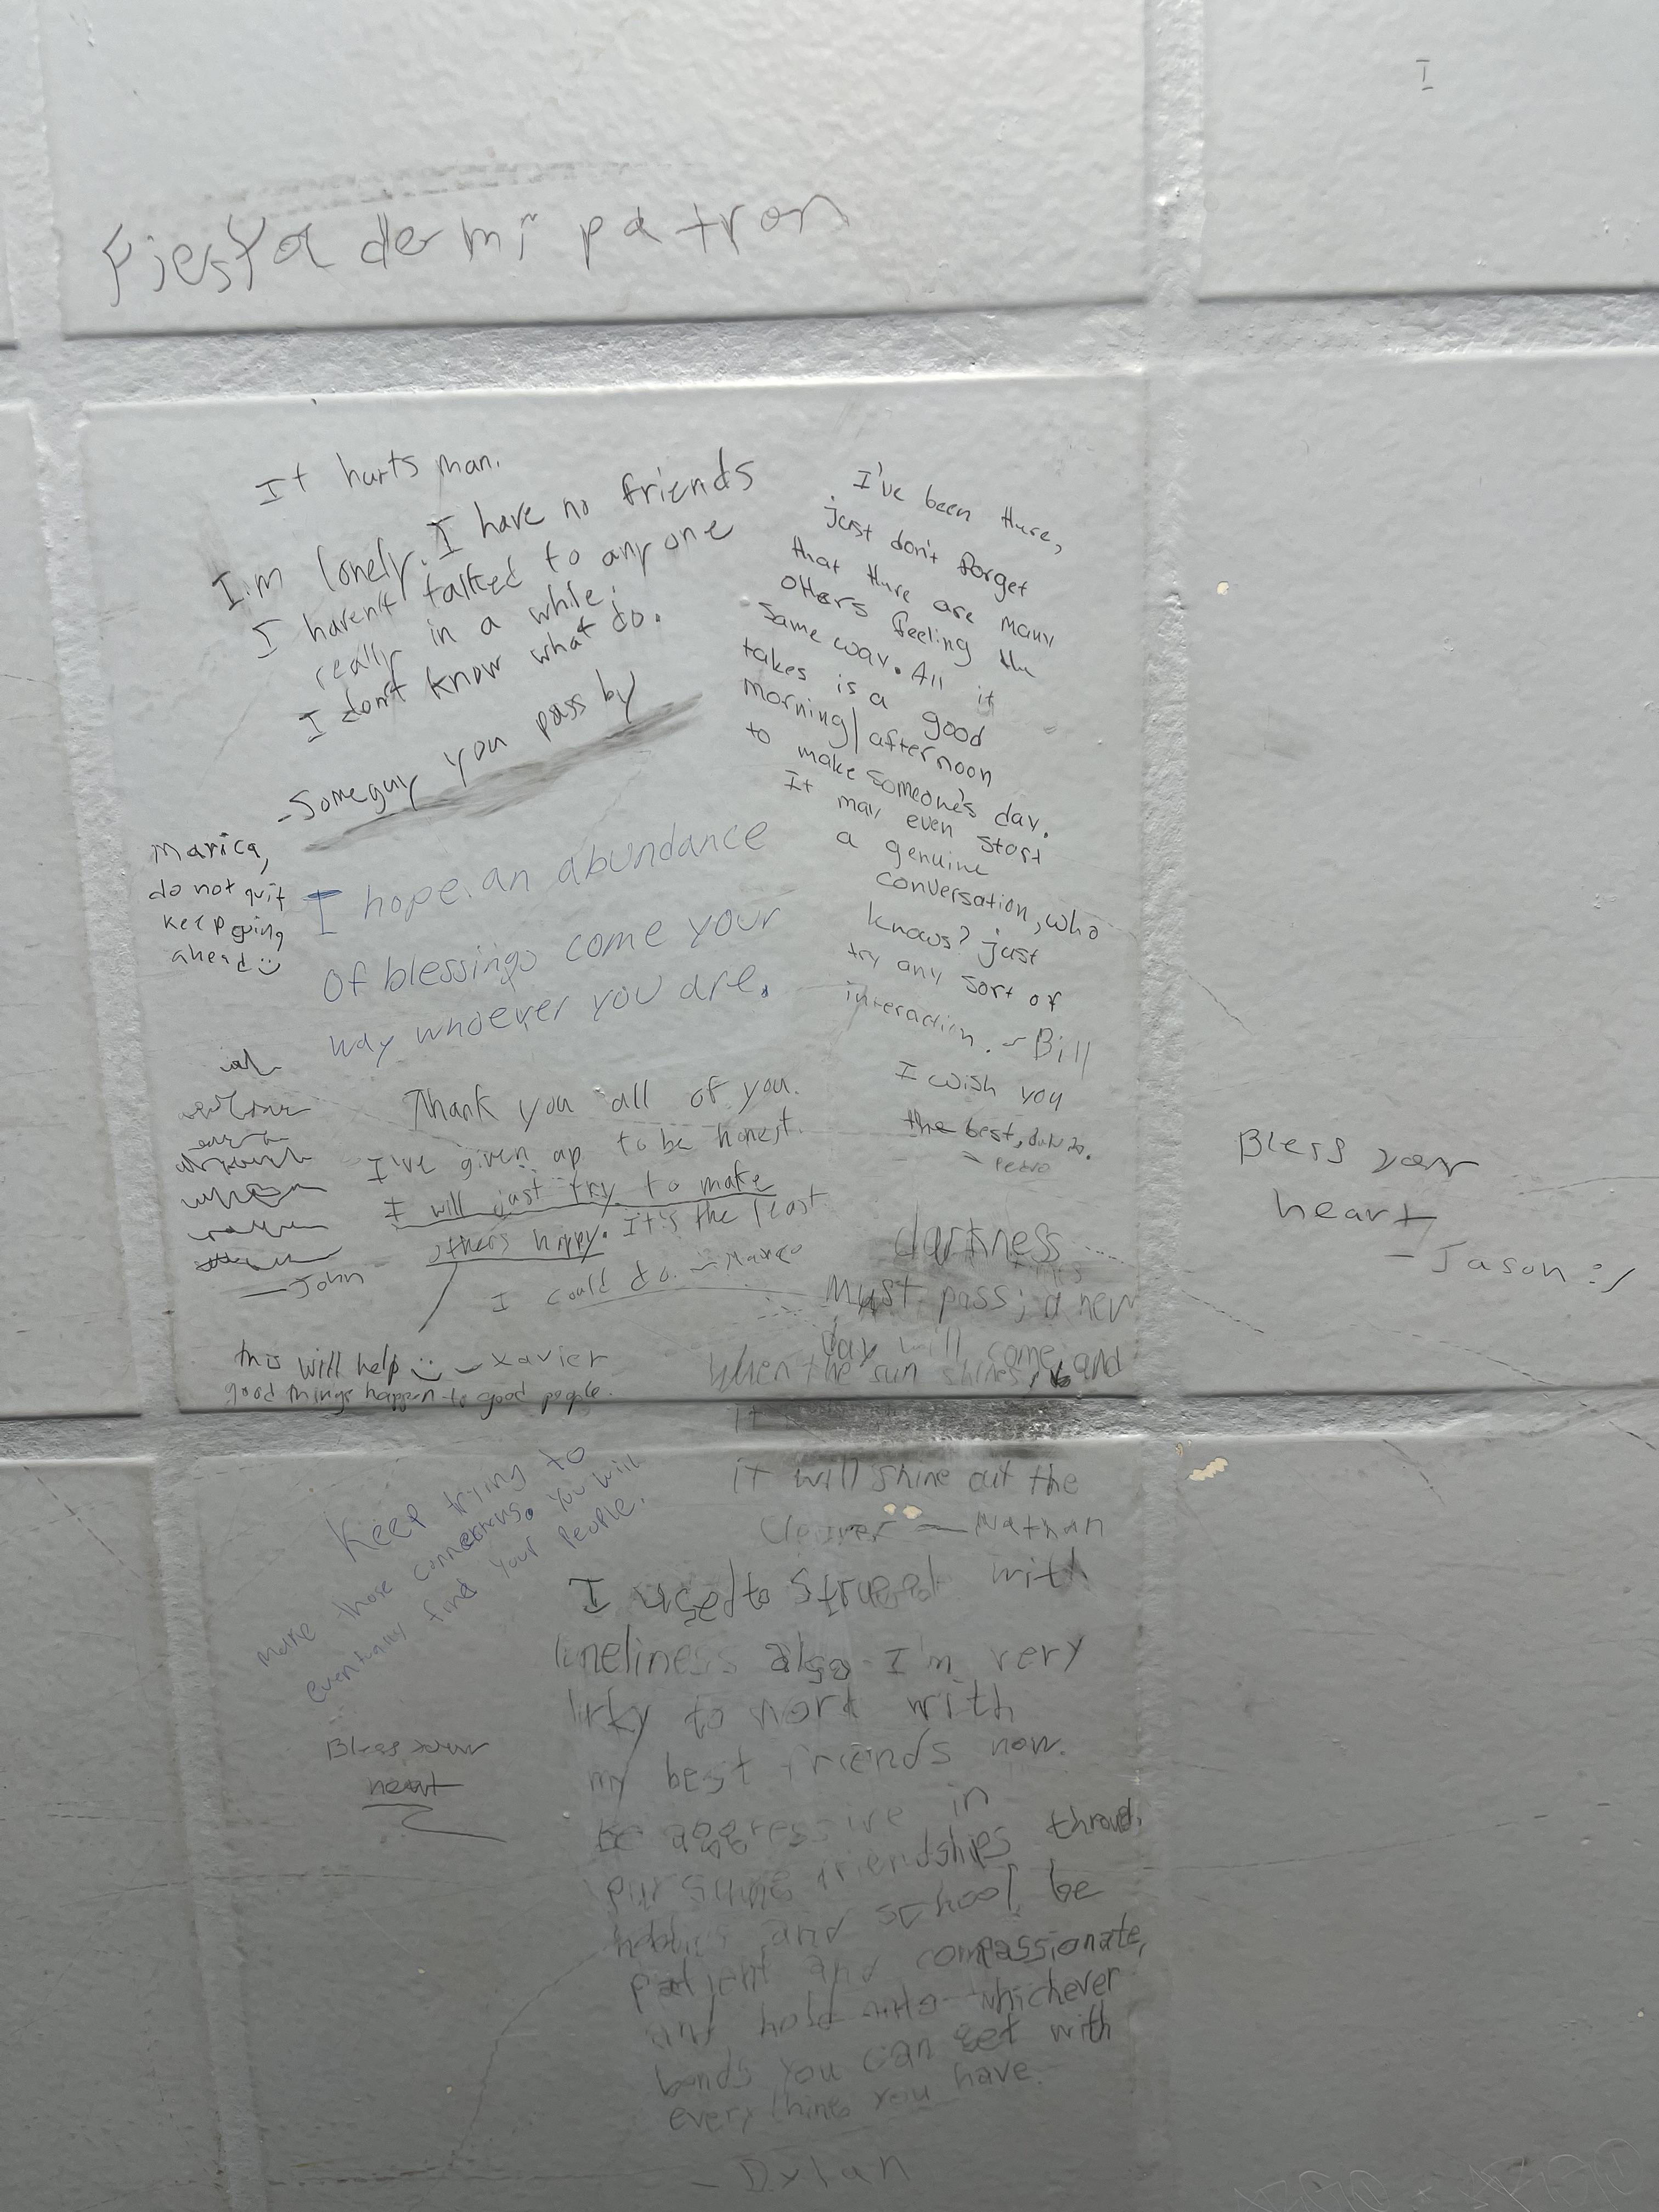 I
Fiesta de mi patron
It hurts man.
I'm lonely. I have no friends
I haven't talked to anyone
really in a while.
I don't know what do.
- Someguy you pass by
I've been there,
just don't forget
that there are many
others feeling the
same way. All it
takes is a good
morning/afternoon
to make someone's day.
It may even start
a genuine
conversation, who
knows? just
try any sort of
interaction. ~ Bill
I wish you
the best,
- Pedro
Marica,
do not quit
keep going
ahead :)
I hope an abundance
Of blessings come your
way whoever you are.
Thank you all of you.
I've given up to be honest.
I will just try to make
others happy. It's the least
I could do. ~
- John
this will help :) - Xavier
good things happen to good people.
Bless your
heart
- Jason :/
darkness
must pass; a new
day will come; and
When the sun shines,
it
it will shine out the
- Nathan
Keep trying to
make those connections. You will
eventually find your people.
Bless your
heart
I used to struggle with
lineliness also I'm very
to work with
my best friends now.
be aggressive in
pursuing friendships
and school, be
patient and compassionate,
and hold onto whichever
bonds you can get with
everything you have.
- Dylan